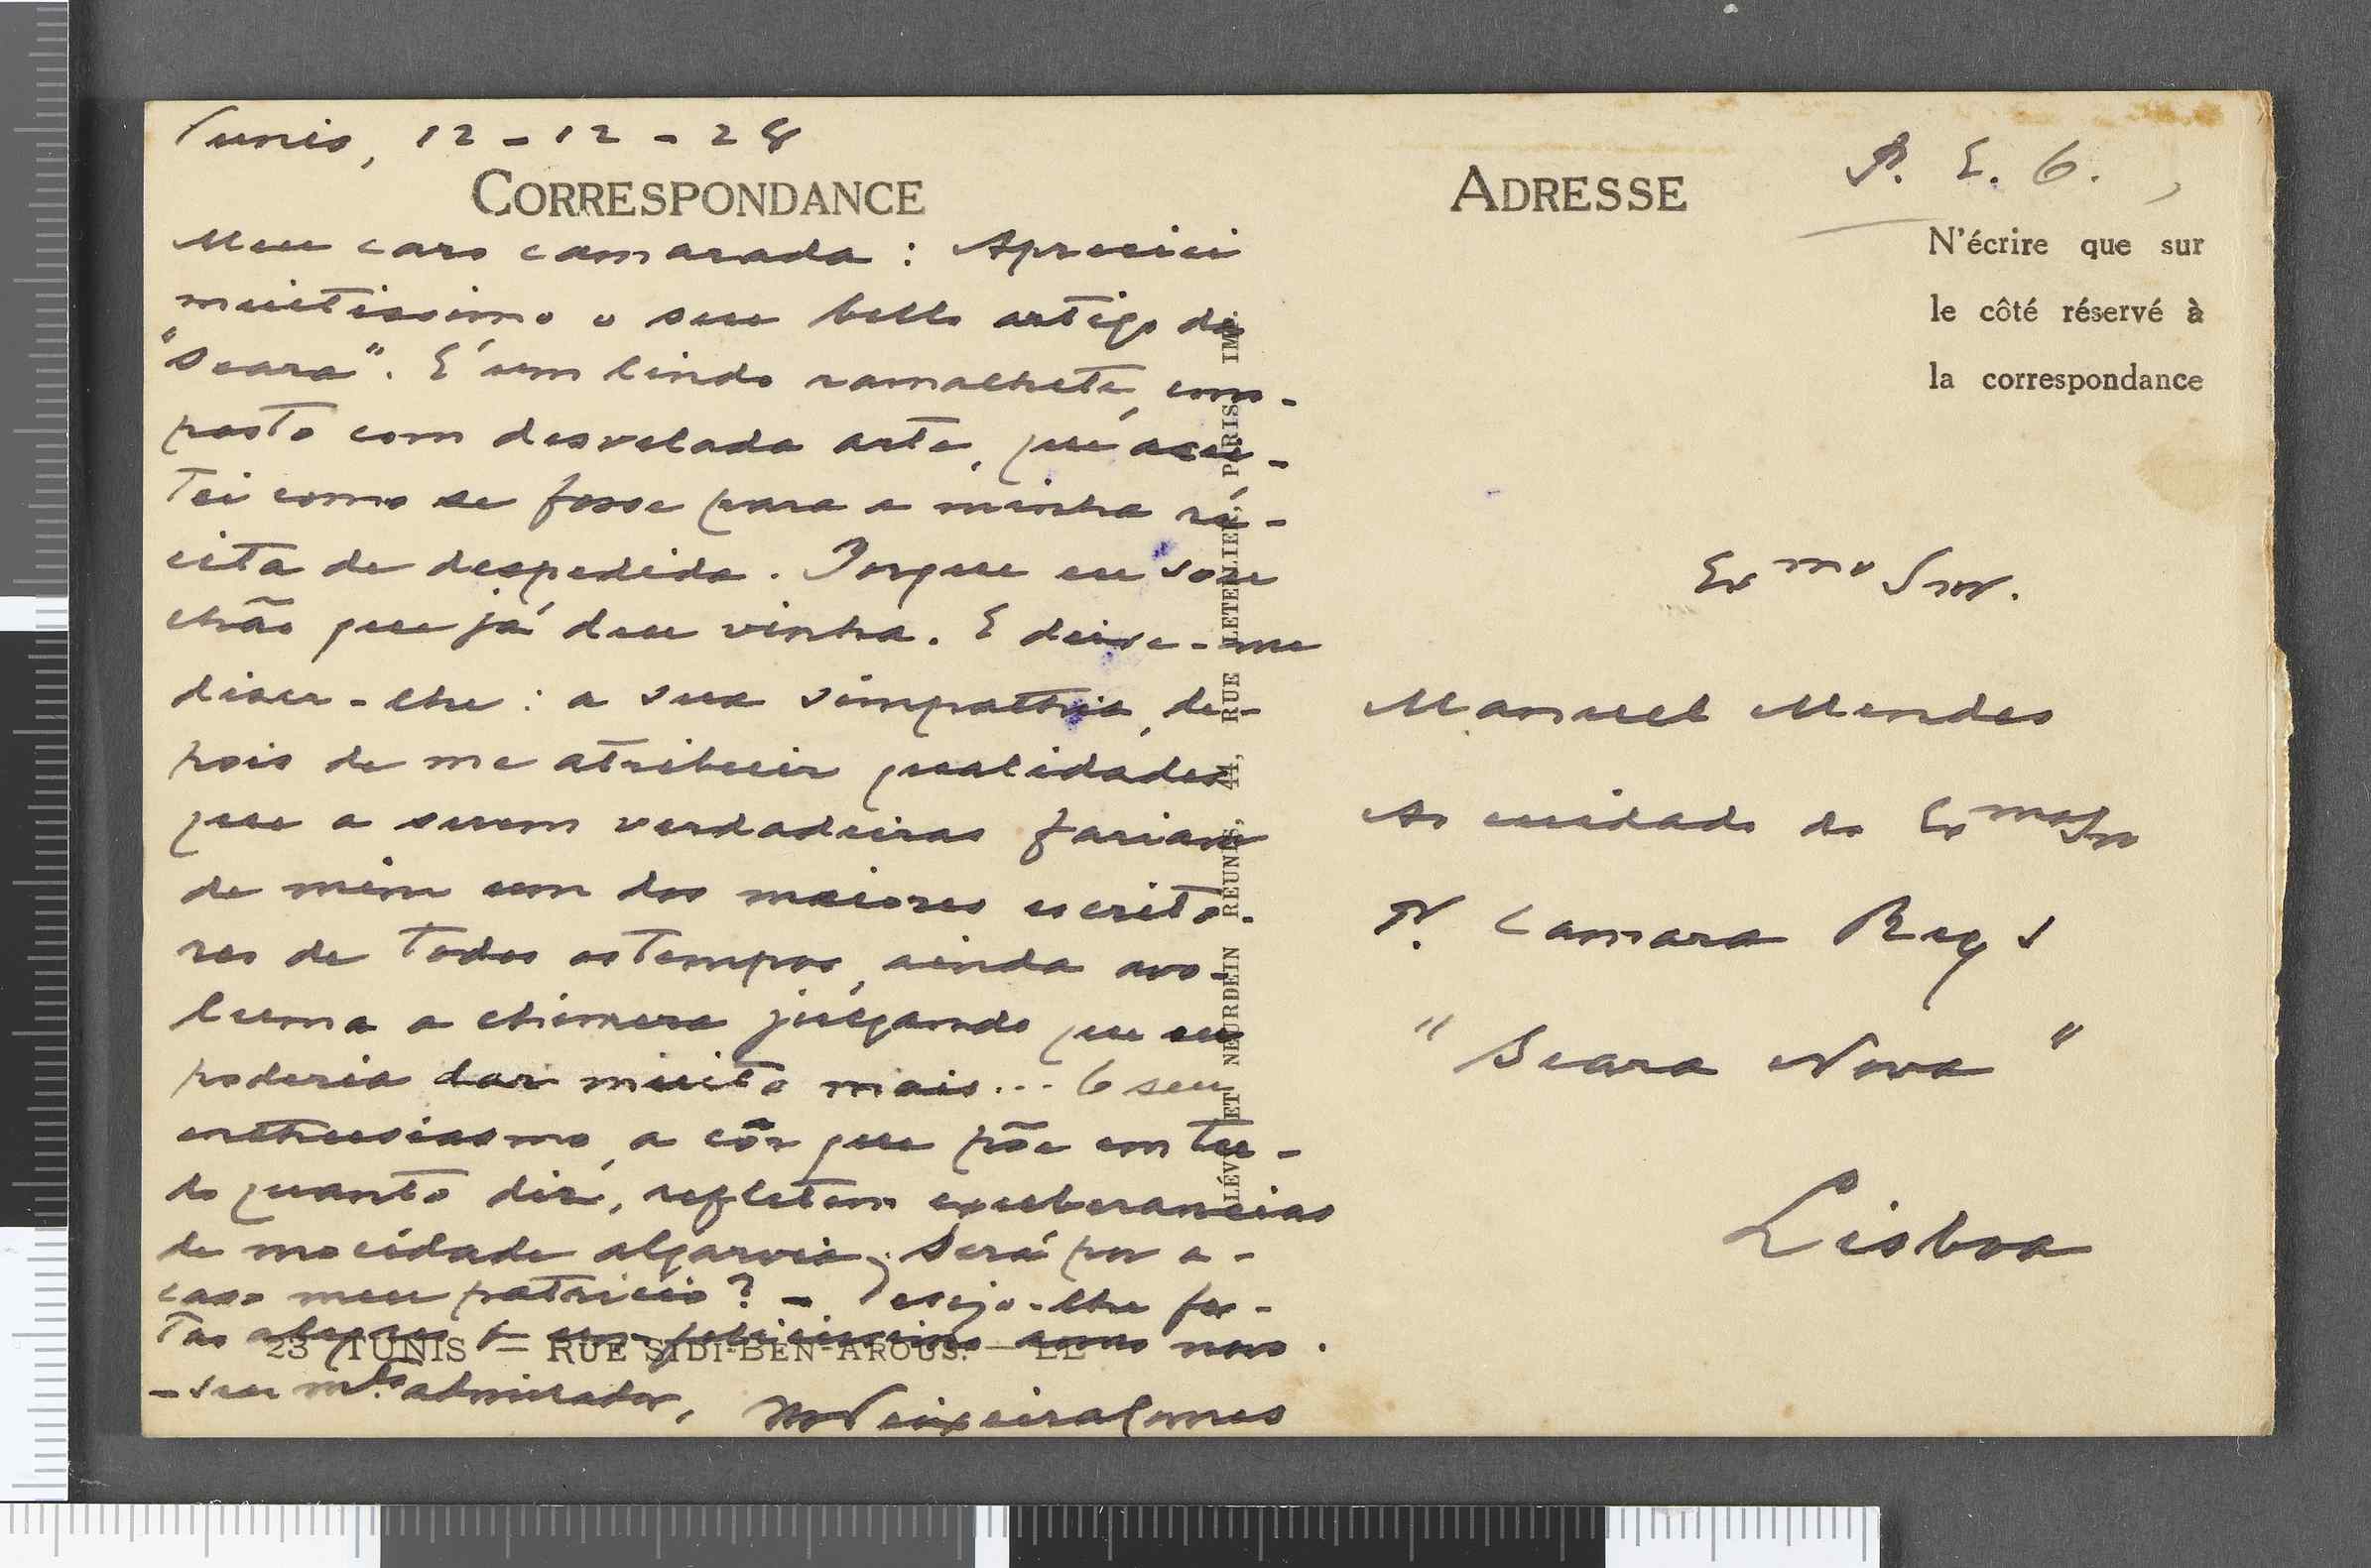 Tunis, 12 - 12 - 28
CORRESPONDANCE
Meu caro camarada: Apreciei
muitissimo o seu bello artigo da
"Seara". É um lindo ramalhete, com-
posto com desvelada arte, que acei-
tei como se fosse para a minha ré-
cita de despedida. Porque eu sou
chão que já deu vinha. E deixe-me
dizer-lhe: a sua simpathia, de-
pois de me atribuir qualidades
que a serem verdadeiras fariam
de mim um dos maiores escrito-
res de todos os tempos, ainda avo-
luma a chimera julgando que eu
poderia dar muito mais... O seu
enthusiasmo, a côr que põe em tu-
do quanto diz, refletem exuberancias
de mocidade algarvia; Será por a-
caso meu patricio? - Desejo-lhe fes-
tas alegres e um felicissimo anno novo.
- Seu mto admirador, MTeixeiraGomes
23 TUNIS — RUE SIDI-BEN-AROUS. — LL
LÉVY ET NEURDEIN REUNIS, 44, RUE LETELLIER, PARIS IMP.
ADRESSE
P. E. O.
N'écrire que sur
le côté réservé à
la correspondance
Exmo Snr.
Manuel Mendes
Ao cuidado do Exmo Sr
N. Camara Reys
"Seara Nova"
Lisboa